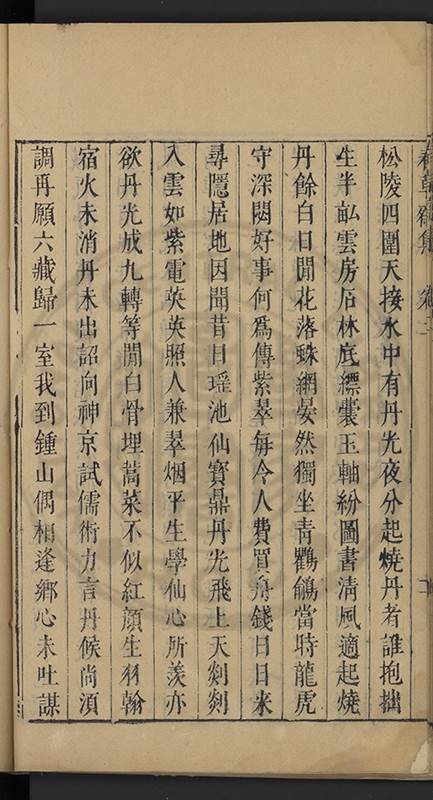 松陵四圍天接水中有丹光夜分起燒丹者誰抱拙
生半畝雲房石林底縹囊玉軸紛圖書清風適起燒
丹餘白日閒花落蛛網晏然獨坐青鸖鵃當時龍虎
守深閟好事何爲傳紫萃每令人費買舟錢日日來
尋隱居地因聞昔日瑶池仙寳鼎丹光飛上天剡剡
入雲如紫電英英照人兼萃烟平生學仙心所羡亦
欲丹光成九轉等閒白骨埋蒿萊不似紅顏生羽翰
宿火未消丹未出詔向神京試儒術力言丹候尚須
調再願六藏歸一室我到鍾山偶相逢鄉心未吐謀